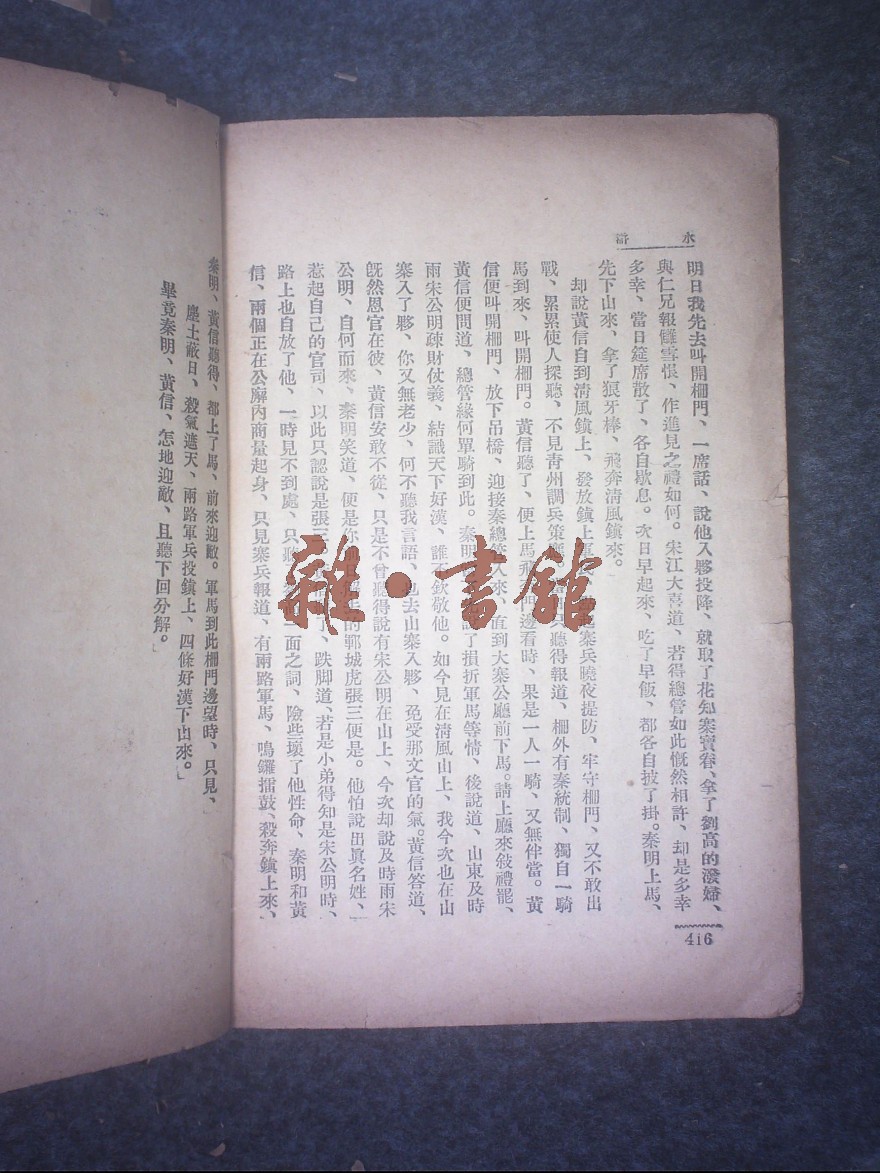 水滸
明日我先去叫開柵門、一席話、說他入夥投降、就取了花知寨寶眷、拿了劉高的潑婦、
與仁兄報讎雪恨、作進見之禮如何。宋江大喜道、若得總管如此慨然相許、却是多幸
多幸、當日筵席散了、各自歇息。次日早起來、吃了早飯、都各自披了掛。秦明上馬、
先下山來、拿了狼牙棒、飛奔清風鎮來。
却說黃信自到清風鎮上、發放鎮上軍 寨兵曉夜提防、牢守柵門、又不敢出
戰、累累使人探聽、不見靑州調兵策 聽得報道、柵外有秦統制、獨自一騎
馬到來、叫開柵門。黃信聽了、便上馬飛 邊看時、果是一人一騎、又無伴當。黃
信便叫開柵門、放下吊橋、迎接秦總管入來、直到大寨公廳前下馬。請上廳來敍禮罷、
黃信便問道、總管緣何單騎到此。秦明 了損折軍馬等情、後說道、山東及時
雨宋公明疎財仗義、結識天下好漢、誰不欽敬他。如今見在清風山上、我今次也在山
寨入了夥、你又無老少、何不聽我言語、也去山寨入夥、免受那文官的氣。黃信答道、
旣然恩官在彼、黃信安敢不從、只是不曾聽得說有宋公明在山上、今次却說及時雨宋
公明、自何而來、秦明笑道、便是你 解去的鄆城虎張三便是。他怕說出眞名姓、
惹起自己的官司、以此只認說是張三 跌脚道、若是小弟得知是宋公明時、
路上也自放了他、一時見不到處、只聽 一面之詞、險些壞了他性命、秦明和黃
信、兩個正在公廨內商量起身、只見寨兵報道、有兩路軍馬、鳴鑼擂鼓、殺奔鎮上來、
秦明、黃信聽得、都上了馬、前來迎敵。軍馬到此柵門邊望時、只見、
塵土蔽日、殺氣遮天、兩路軍兵投鎮上、四條好漢下山來。」
畢竟秦明、黃信、怎地迎敵、且聽下回分解。」
416
雜·書館